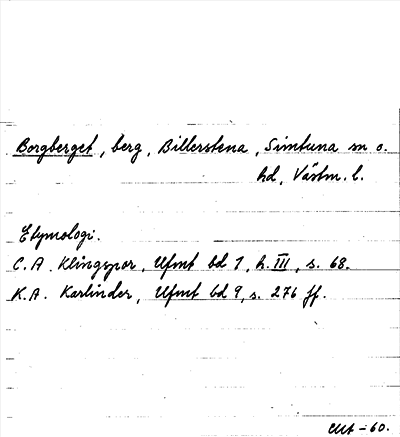 Borgberget, berg, Billerstena, Simtuna sn o.
hd, Västm. l.
Etymologi.
C. A. Klingspor, Ufmt bd 1, h. III, s. 68.
K. A. Karlinder, Ufmt bd 9, s. 276 ff.
-60.